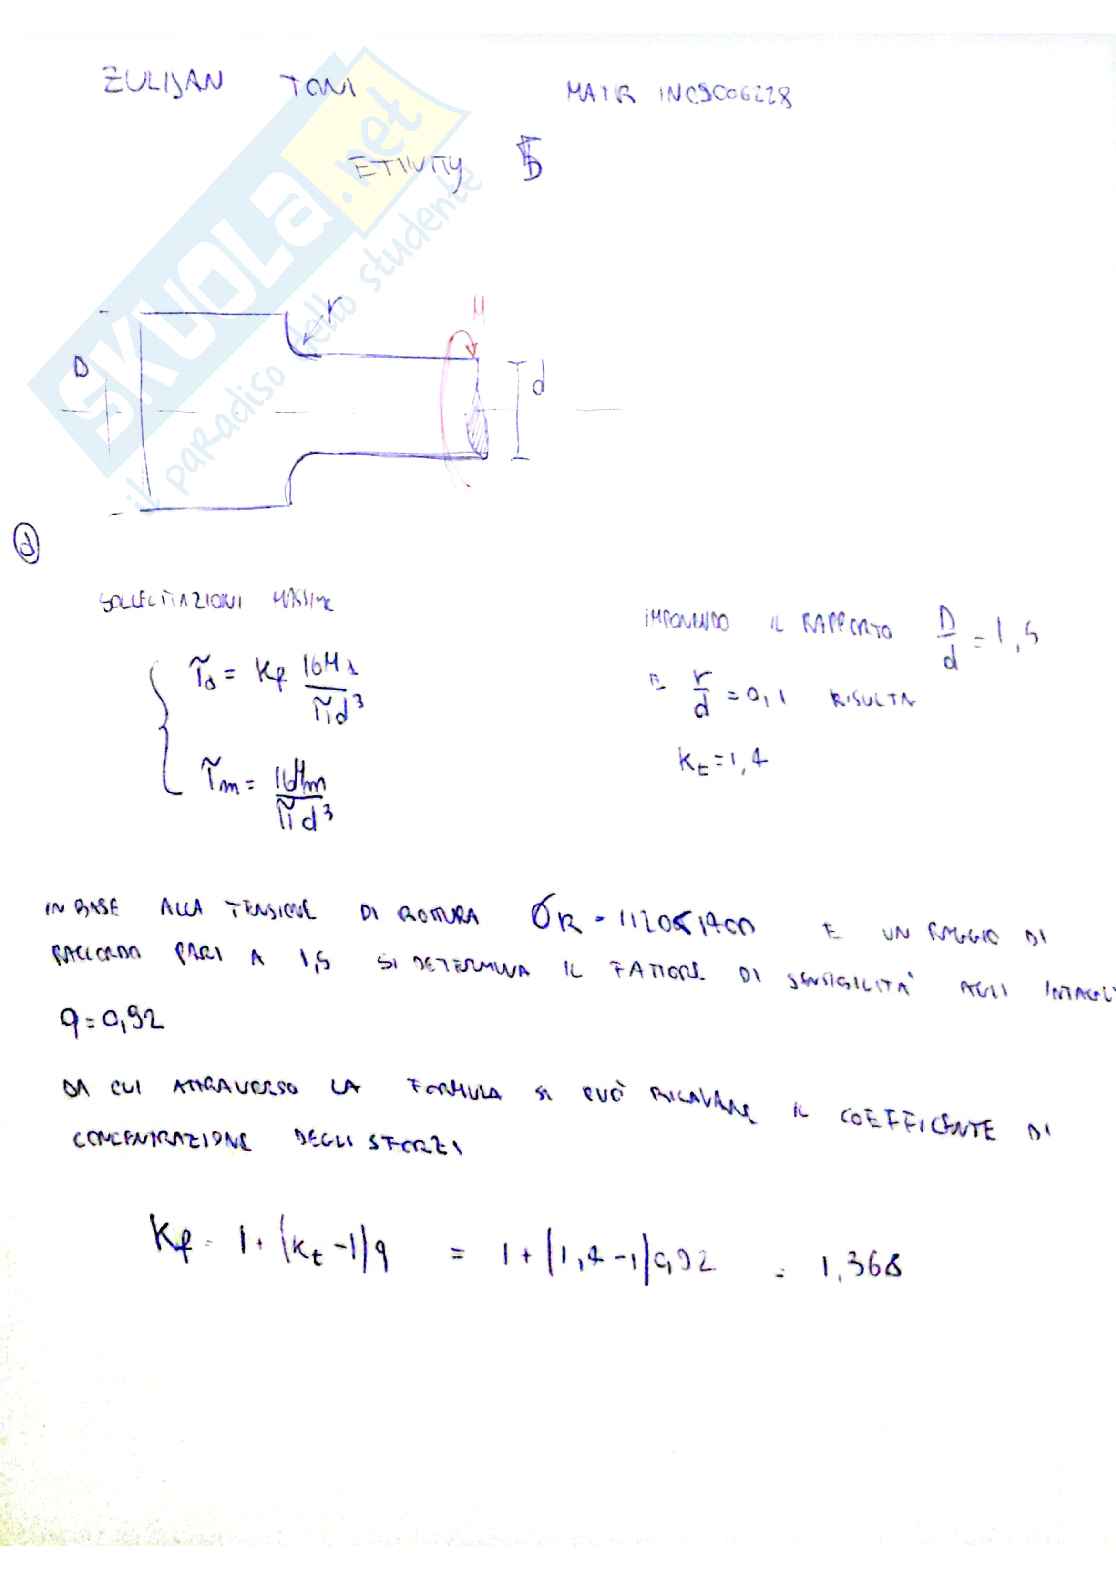 ZULIJAN TONI MATR INC9C06228
ETIVITY 5
SKUOLA.net
il paradiso dello studente
r
M
D
d
a
SOLLECITAZIONI MASSIME
τa = Kf 16Ma / πd³
τm = 16Mm / πd³
IMPONENDO IL RAPPORTO D/d = 1,5
E r/d = 0,1 RISULTA
Kt = 1,4
IN BASE ALLA TENSIONE DI ROTTURA σR = 1120 E UN RAGGIO DI
RACCORDO PARI A 1,5 SI DETERMINA IL FATTORE DI SENSIBILITA' AGLI INTAGLI
q = 0,92
DA CUI ATTRAVERSO LA FORMULA SI PUÒ RICAVARE IL COEFFICENTE DI
CONCENTRAZIONE DEGLI SFORZI
Kf = 1 + (Kt - 1)q = 1 + (1,4 - 1)0,92 = 1,368